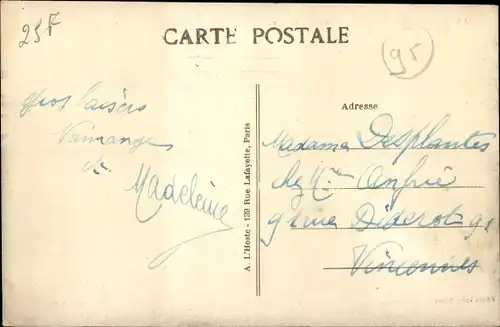 25F
CARTE POSTALE
95
Adresse
Gros baisers
de
Madeleine
A. L'Hoste - 139 Rue Lafayette, Paris
Madame Desplantes
chez Mme
9 rue Diderot 9
Vincennes